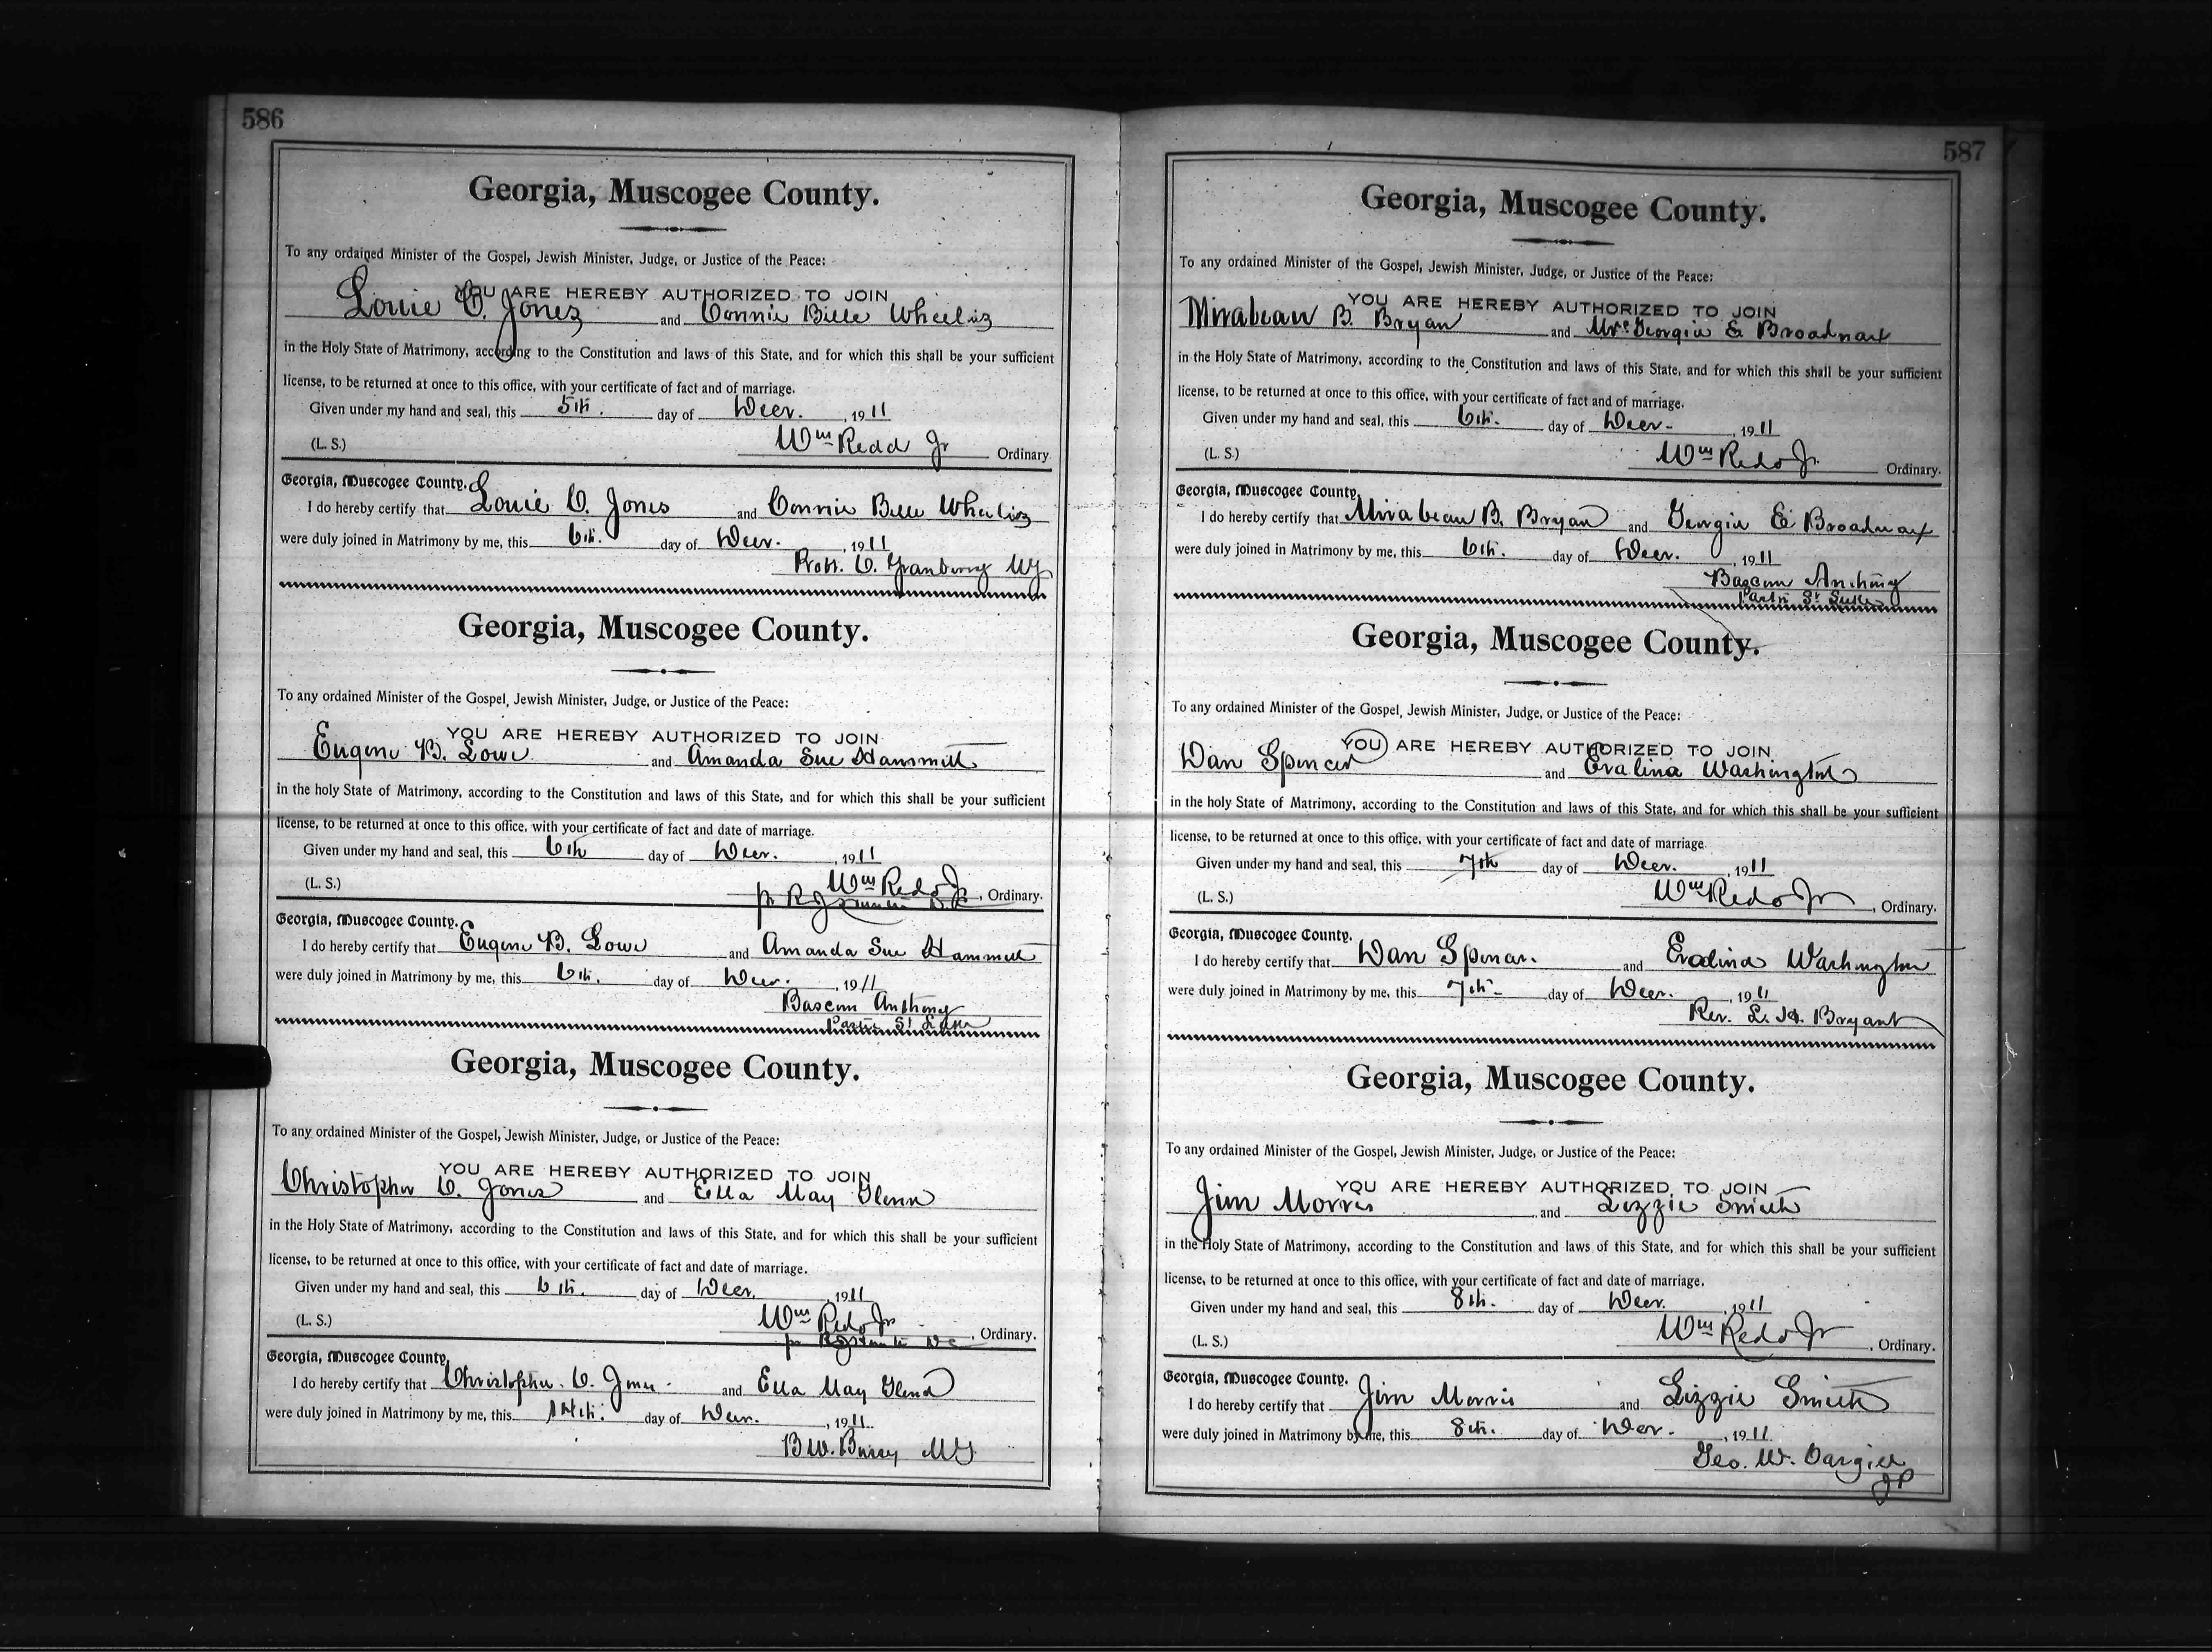 586
Georgia, Muscogee County.
To any ordained Minister of the Gospel, Jewish Minister, Judge, or Justice of the Peace:
YOU ARE HEREBY AUTHORIZED TO JOIN
Louie C. Jones and Connie Belle Wheelis
in the Holy State of Matrimony, according to the Constitution and laws of this State, and for which this shall be your sufficient
license, to be returned at once to this office, with your certificate of fact and of marriage.
Given under my hand and seal, this 5th. day of Decr. , 1911
(L. S.) Wm Redd Jr Ordinary
Georgia, Muscogee County.
I do hereby certify that Louie C. Jones and Connie Belle Wheelis
were duly joined in Matrimony by me, this 6th. day of Decr. , 1911
Robt. C. Granberry MG
Georgia, Muscogee County.
To any ordained Minister of the Gospel, Jewish Minister, Judge, or Justice of the Peace:
YOU ARE HEREBY AUTHORIZED TO JOIN
Eugene B. Lowe and Amanda Sue Hammett
in the holy State of Matrimony, according to the Constitution and laws of this State, and for which this shall be your sufficient
license, to be returned at once to this office, with your certificate of fact and date of marriage.
Given under my hand and seal, this 6th day of Decr. , 1911
(L. S.) Wm Redd Jr , Ordinary.
Georgia, Muscogee County.
I do hereby certify that Eugene B. Lowe and Amanda Sue Hammett
were duly joined in Matrimony by me, this 6th. day of Decr. , 1911
Bascom Anthony
Pastor St Luke
Georgia, Muscogee County.
To any ordained Minister of the Gospel, Jewish Minister, Judge, or Justice of the Peace:
YOU ARE HEREBY AUTHORIZED TO JOIN
Christopher C. Jones and Ella May Glenn
in the Holy State of Matrimony, according to the Constitution and laws of this State, and for which this shall be your sufficient
license, to be returned at once to this office, with your certificate of fact and date of marriage.
Given under my hand and seal, this 6th. day of Decr. , 1911
(L. S.) Wm Redd Jr , Ordinary.
Georgia, Muscogee County.
I do hereby certify that Christopher C. Jones and Ella May Glenn
were duly joined in Matrimony by me, this 14th. day of Decr. , 1911
B. W. MG
587
Georgia, Muscogee County.
To any ordained Minister of the Gospel, Jewish Minister, Judge, or Justice of the Peace:
YOU ARE HEREBY AUTHORIZED TO JOIN
Mirabeau B. Bryan and Mrs. Georgia E Broadnax
in the Holy State of Matrimony, according to the Constitution and laws of this State, and for which this shall be your sufficient
license, to be returned at once to this office, with your certificate of fact and of marriage.
Given under my hand and seal, this 6th. day of Decr. , 1911
(L. S.) Wm Redd Jr. Ordinary.
Georgia, Muscogee County.
I do hereby certify that Mirabeau B. Bryan and Georgia E Broadnax
were duly joined in Matrimony by me, this 6th. day of Decr. , 1911
Bascom Anthony
Pastor St Luke
Georgia, Muscogee County.
To any ordained Minister of the Gospel, Jewish Minister, Judge, or Justice of the Peace:
YOU ARE HEREBY AUTHORIZED TO JOIN
Dan Spencer and Evalina Washington
in the holy State of Matrimony, according to the Constitution and laws of this State, and for which this shall be your sufficient
license, to be returned at once to this office, with your certificate of fact and date of marriage.
Given under my hand and seal, this 7th day of Decr. , 1911
(L. S.) Wm Redd Jr , Ordinary.
Georgia, Muscogee County.
I do hereby certify that Dan Spencer. and Evalina Washington
were duly joined in Matrimony by me, this 7th. day of Decr. , 1911
Rev. L. H. Bryant
Georgia, Muscogee County.
To any ordained Minister of the Gospel, Jewish Minister, Judge, or Justice of the Peace:
YOU ARE HEREBY AUTHORIZED TO JOIN
Jim Morris and Lizzie Smith
in the Holy State of Matrimony, according to the Constitution and laws of this State, and for which this shall be your sufficient
license, to be returned at once to this office, with your certificate of fact and date of marriage.
Given under my hand and seal, this 8th. day of Decr. , 1911
(L. S.) Wm Redd Jr , Ordinary.
Georgia, Muscogee County.
I do hereby certify that Jim Morris and Lizzie Smith
were duly joined in Matrimony by me, this 8th. day of Decr. , 1911
Geo. W. Cargill
JP